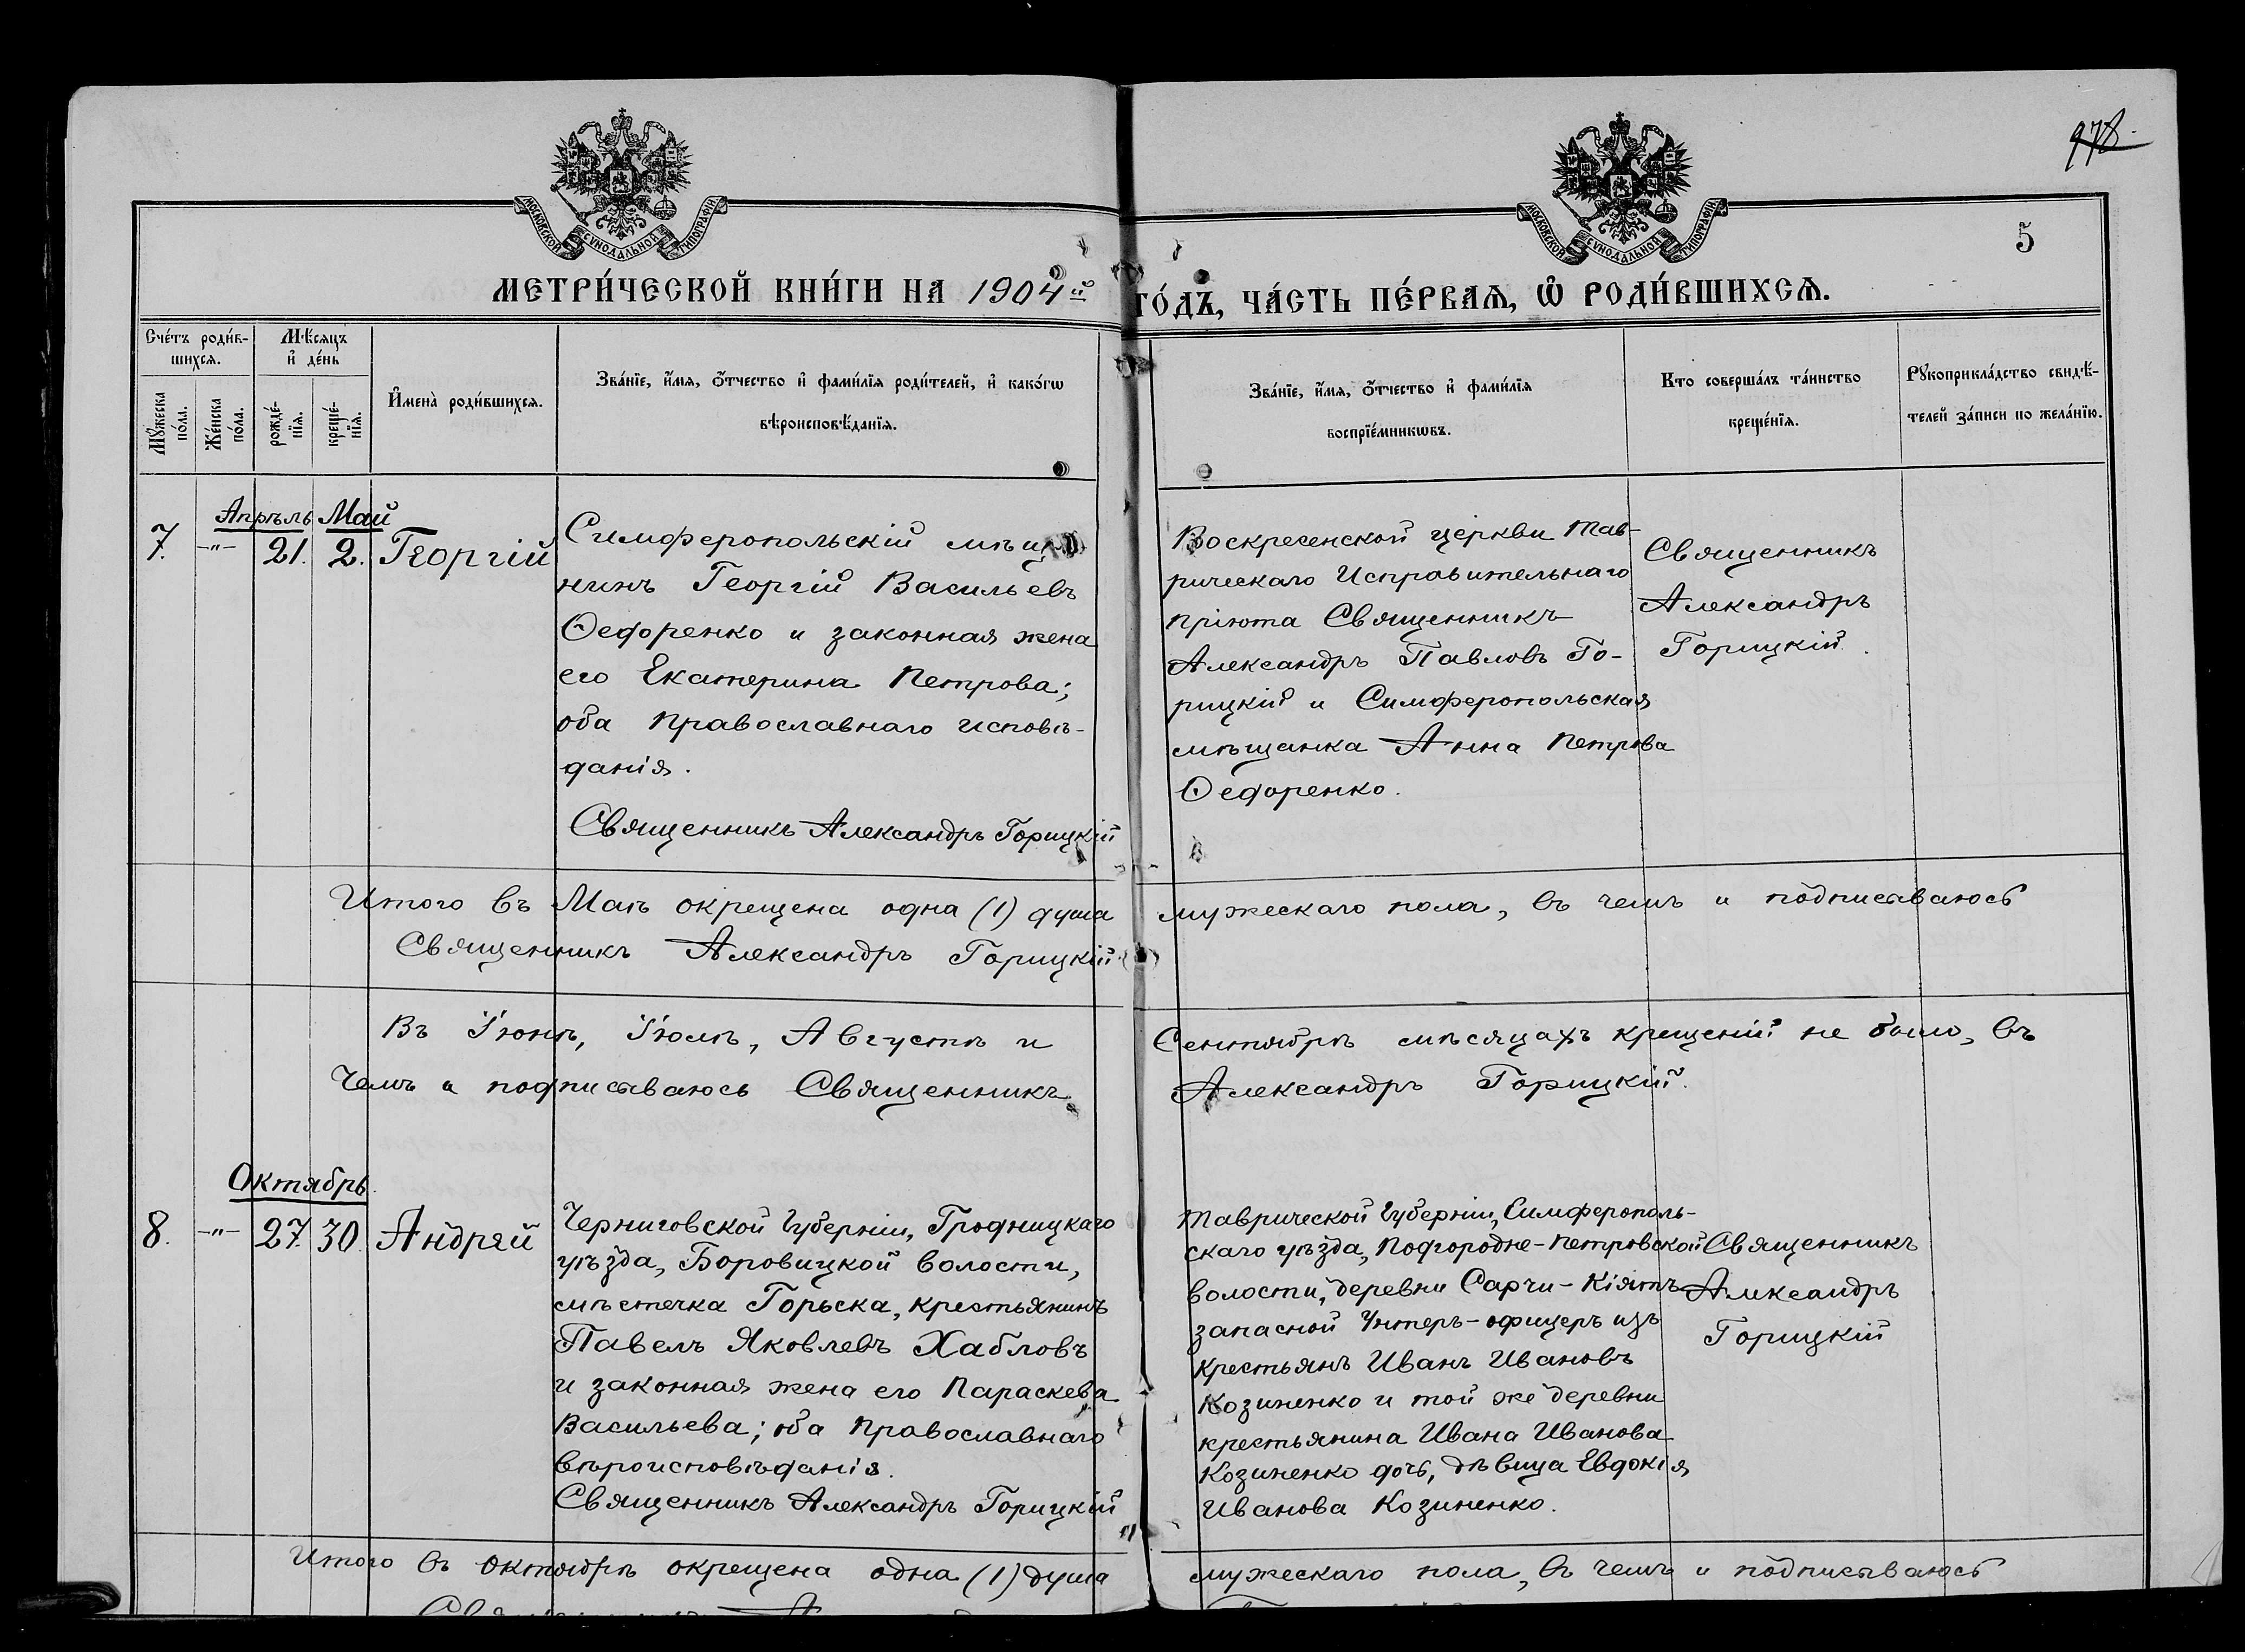 978.
5
МОСКОВСКОЙ СѴНОДАЛЬНОЙ ТИПОГРАФІИ
МОСКОВСКОЙ СѴНОДАЛЬНОЙ ТИПОГРАФІИ
МЕТРИ́ЧЕСКОЙ КНИ́ГИ НА 1904й
ГО́ДЪ, ЧА́СТЬ ПЕ́РВАѦ, Ѽ РОДИ́ВШИХСѦ.
Сче́тъ роди́в-
шихсѧ.
Мꙋжеска
по́ла.
Же́нска
по́ла.
Мѣ́сѧцъ
и҆ де́нь
рожде́-
нїѧ.
креще́-
нїѧ.
И҆мена̀ роди́вшихсѧ.
Зва́нїе, и҆́мѧ, ѻ҆́тчество и҆ фами́лїѧ роди́телей, и҆ како́гѡ
вѣроисповѣ́данїѧ.
Зва́нїе, и҆́мѧ, ѻ҆́тчество и҆ фами́лїѧ
воспрїе́мникѡвъ.
Кто соверша́лъ та́инство
креще́нїѧ.
Рꙋкоприкла́дство свидѣ́-
телей за́писи по жела́нїю.
Апрѣль Май
7. -"- 21. 2. Георгій
Симферопольскій мѣща
нинъ Георгій Васильевъ
Ѳедоренко и законная жена
его Екатерина Петрова;
оба православнаго исповѣ-
данія.
Священникъ Александръ Горицкій
Воскресенской церкви Тав-
рическаго Исправительнаго
пріюта Священникъ
Александръ Павловъ Го-
рицкій и Симферопольская
мѣщанка Анна Петрова
Ѳедоренко.
Священникъ
Александръ
Горицкій.
Итого въ Маѣ окрещена одна (1) душа мужескаго пола, въ чемъ и подписываюсь
Священникъ Александръ Горицкій.
Въ Іюнѣ, Іюлѣ, Августѣ и Сентябрѣ мѣсяцахъ крещеній не было, въ
чемъ и подписываюсь Священникъ Александръ Горицкій.
Октябрь.
8. -"- 27. 30. Андрей
Черниговской губерніи, Гродницкаго
уѣзда, Боровицкой волости,
мѣстечка Горьска, крестьянинъ
Павелъ Яковлевъ Хабловъ
и законная жена его Параскева
Васильева; оба православнаго
вѣроисповѣданія.
Священникъ Александръ Горицкій
Таврической губерніи, Симферополь-
скаго уѣзда, Подгородне-Петровской
волости, деревни Сарчи-Кіятъ
запасной Унтеръ-офицеръ изъ
крестьянъ Иванъ Ивановъ
Козиненко и той же деревни
крестьянина Ивана Иванова
Козиненко дочь, дѣвица Евдокія
Иванова Козиненко.
Священникъ
Александръ
Горицкій
Итого въ Октябрѣ окрещена одна (1) душа мужескаго пола, въ чемъ и подписываюсь